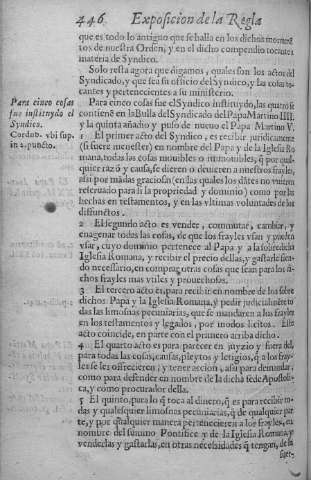 446. Exposicion de la Regla
que es todo lo antiguo que se halla en los dichos
tos de nuestra Orden, y en el dicho compendio
materia de Syndico.
Solo resta agora que digamos, quales son los actos del
Syndicado, y que sea su officio del Syndico, y las cosas to-
cantes y pertenecientes a su ministerio.
Para cinco cosas
fue instituydo el
Syndico.
Cordub. vbi sup.
in 2. puncto.
Para cinco cosas fue el Syndico instituydo, las quatro se
contienē en la Bulla del Syndicado del Papa Martino IIII.
y la quinta añadio y puso de nueuo el Papa Martino V.
1 El primer acto del Syndico, es recibir juridicamente
(si fuere menester) en nombre del Papa y de la Iglesia Ro
mana, todas las cosas mouibles o immouibles, q̃ por qual-
quier razō y causa, se dieren o deuieren a nuestros frayles,
assi por mādas graciosas (en las quales los dātes no vuiesē
reseruado para si la propriedad y dominio) como por las
hechas en testamentos, y en las vltimas voluntades de los
diffunctos.
2 El segundo acto es vender, commutar, cambiar, y
enagenar todas las cosas, de que los frayles vsan y puedē
vsar, cuyo dominio pertenece al Papa y a la sobredicha
Iglesia Romana, y recibir el precio dellas, y gastarle siēdo
necessario, en comprar otras cosas que sean para los di-
chos frayles mas vtiles y prouechosas.
3 El tercero acto es, para recibir en nombre de los sobre
dichos Papa y la Iglesia Romana, y pedir judicialmēte to
das las limosnas pecuniarias, que se mandaren a los frayles
en los testamentos y legados, por modos licitos. Este
acto coincide, en parte con el primero arriba dicho.
4 El quarto acto es para parecer en juyzio y fuera del,
para todas las cosas, causas, pleytos y letigios, q̃ a los fray-
les se les offrecieren; y tener accion, assi para demandar,
como para defender en nombre de la dicha sede Apostoli-
ca, y como procurador della.
5 El quinto, para lo q̃ toca al dinero, q̃ es para recibir to-
das y qualesquier limosnas pecuniarias, q̃ de qualquier par
te, y por qualquier manera pertenecieren a los frayles, en
nombre del summo Pontifice y de la Iglesia Romana, y
venderlas y gastarlas, en otras necessidades q̃ tengan, de la